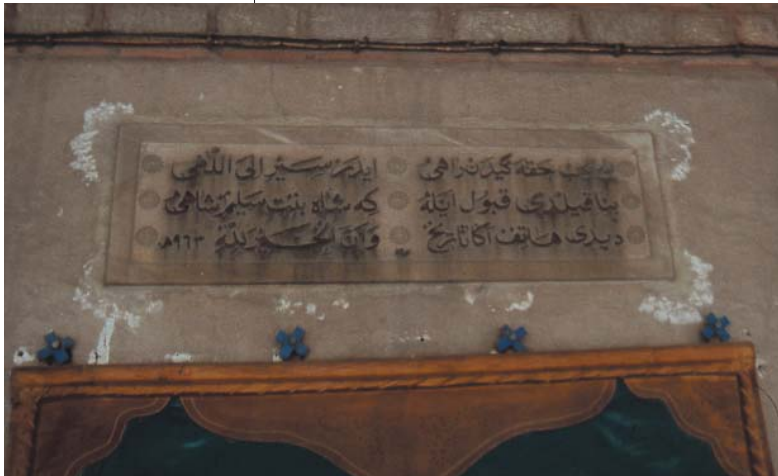 حقه كيدن راهى ايدر سير الى اللهى
بنا قيلدى قبول ايله كه شاه بنت سليم شاهى
ديدى هاتف اكا تاريخ وأن الخير لله ٩٦٣هـ